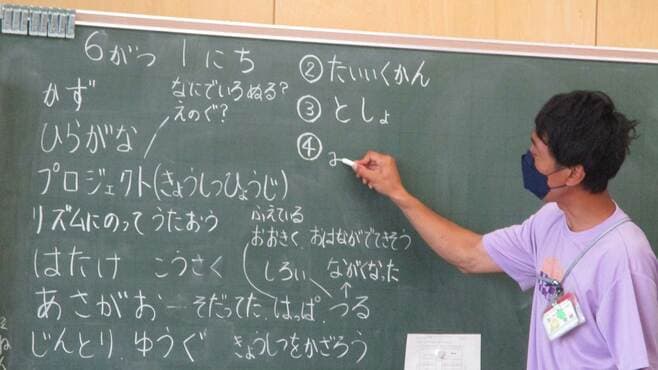 6がつ 1にち
かず
なにでいろぬる?
えのぐ?
ひらがな
プロジェクト(きょうしつひょうじ)
リズムにのって うたおう
ふえている
おおきく おはながでてきそう
はたけ こうさく
しろい ながくなった
あさがお…そだってた.はっぱ.つる
じんとり.ゆうぐ きょうしつをかざろう
② たいいくかん
③ としょ
④